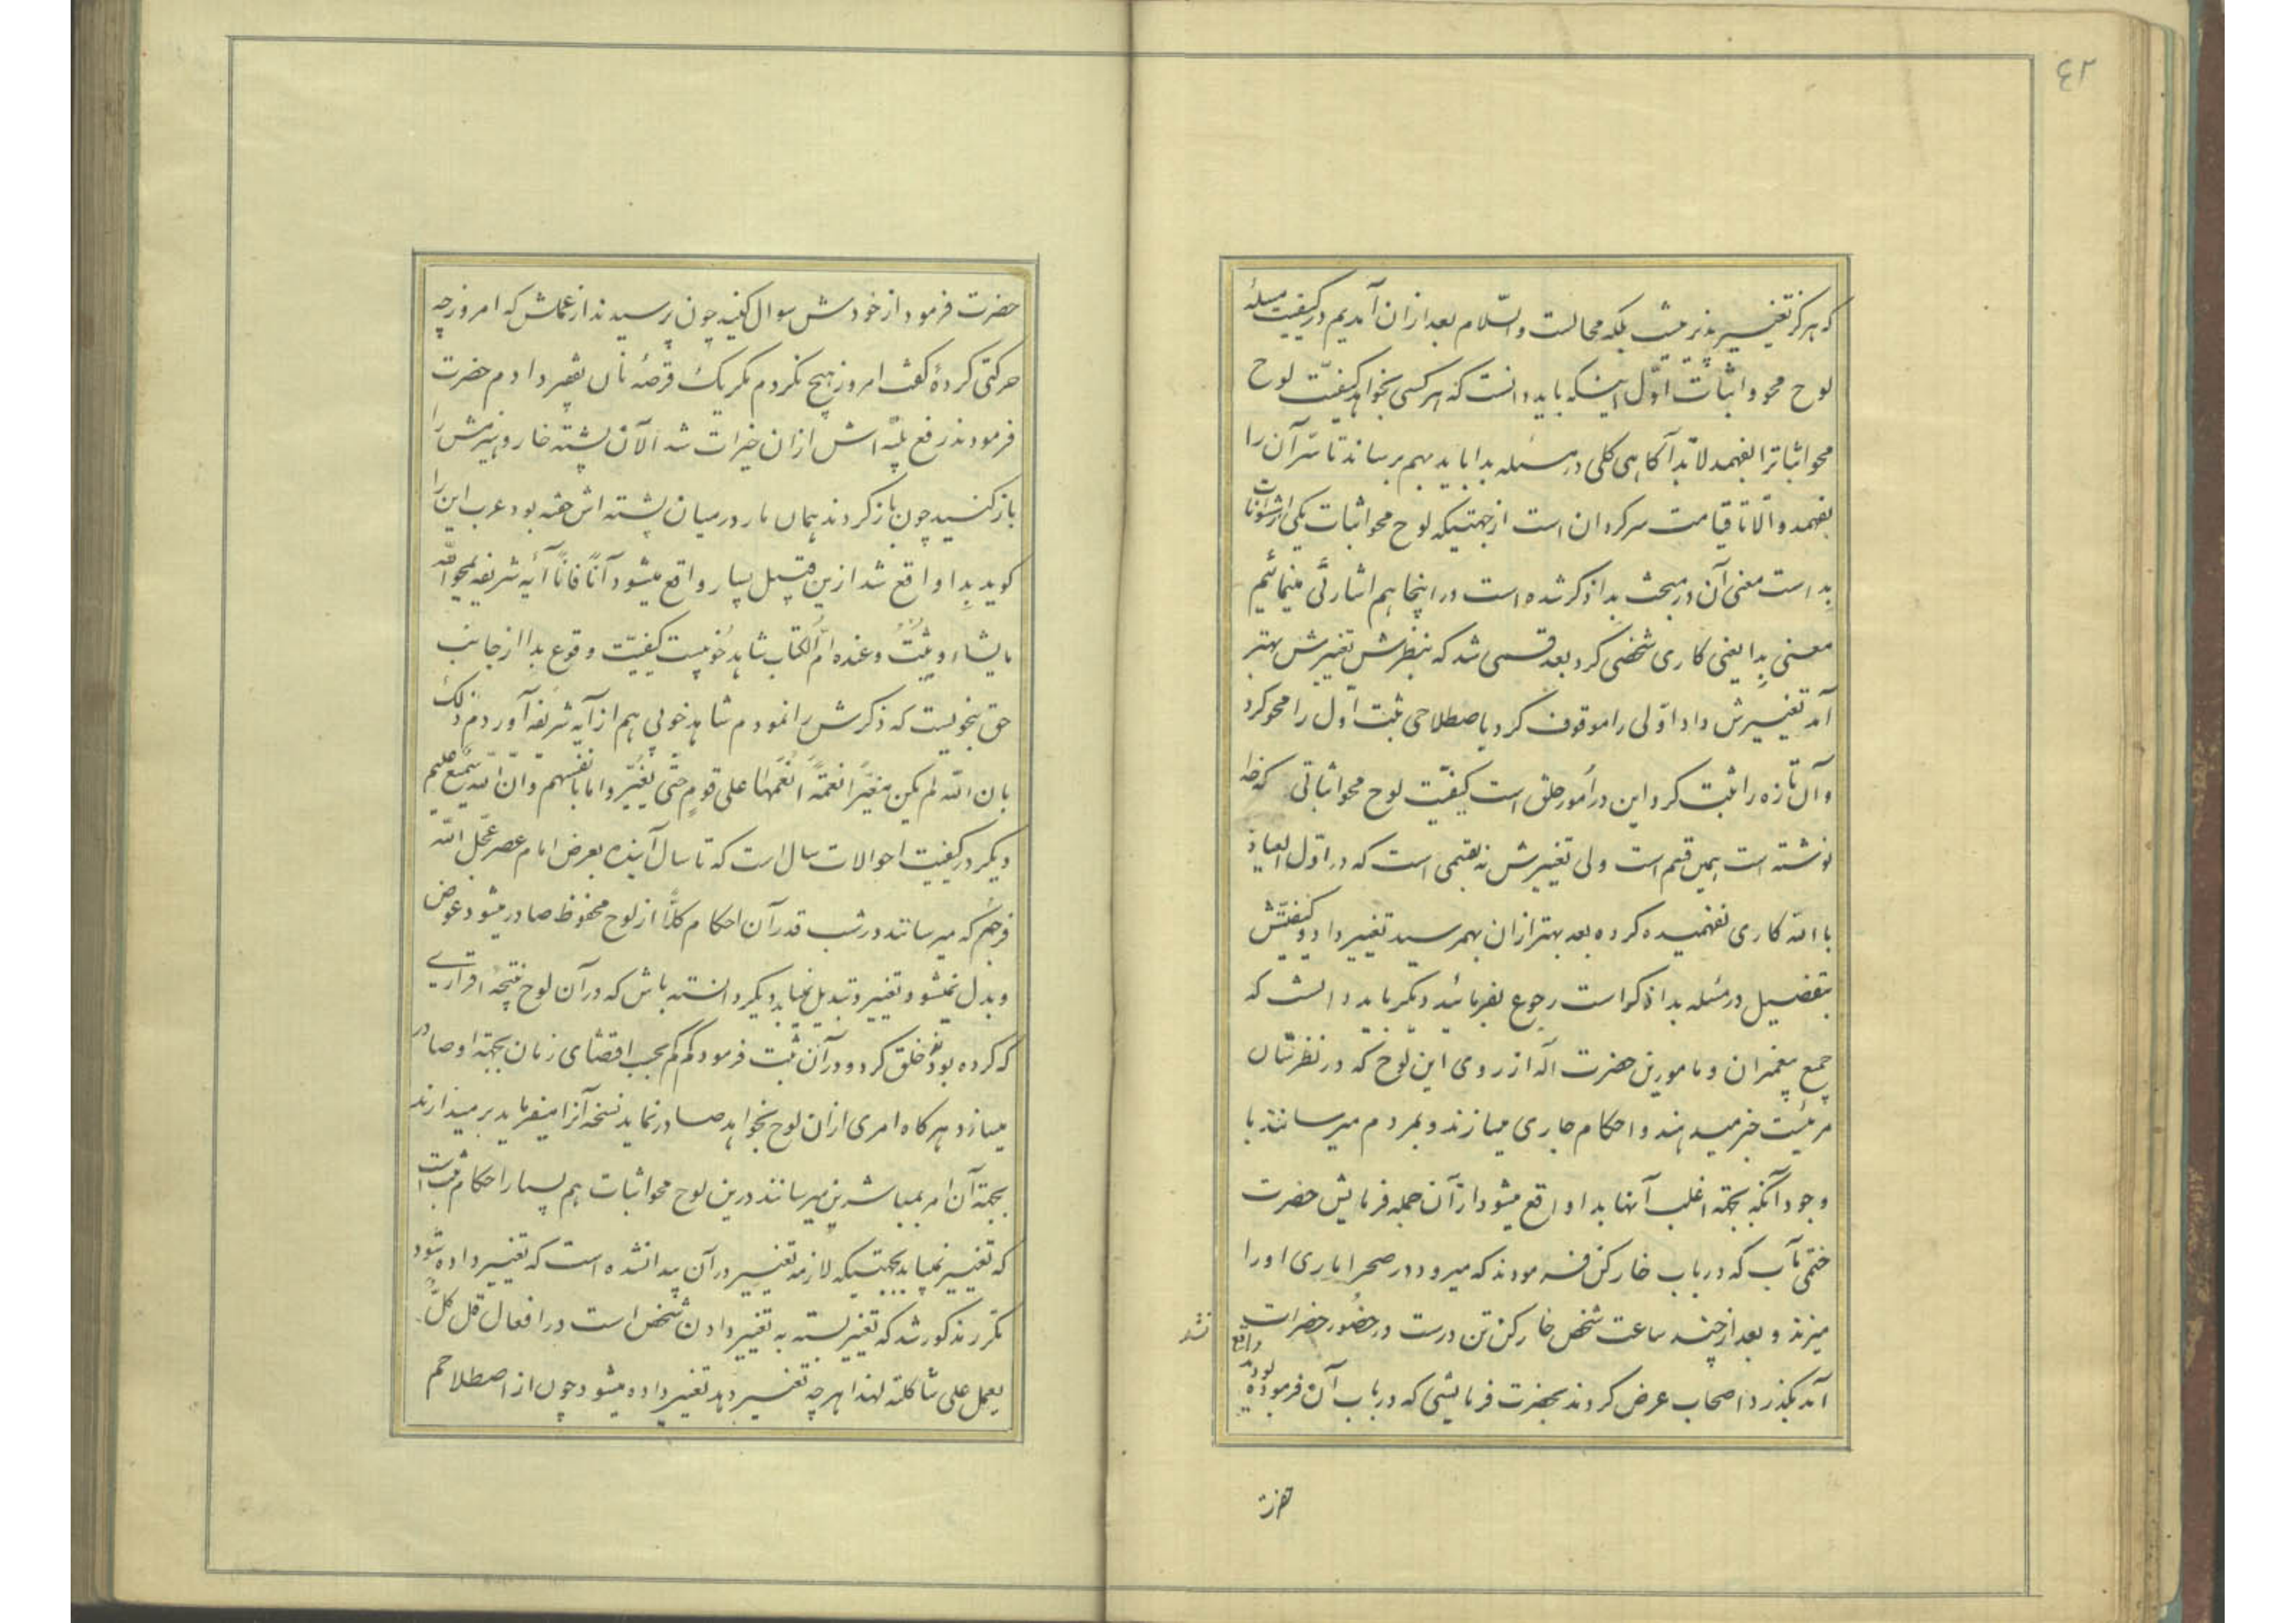 ۴۲
که هرگز تغییر پذیر نیست بلکه محالست والسّلام بعد ازان آمدیم در کیفیت مسئلهٔ
لوح محو و اثبات اوّل اینکه باید دانست که هر کسی بخواهد کیفیّت لوح
محو اثباترا بفهمد لابدّ آکاهی کلی در مسئله بدا باید بهم برساند تا سرّ آن را
بفهمد والّا تا قیامت سرکردان است از جهتیکه لوح محو اثبات یکی از شئونات
بدِا است معنی آن در مبحث بدا ذکر شده است در اینجا هم اشارئی مینمائیم
معنی بدِا یعنی کاری شخصی کرد بعد قسمی شد که بنظرش تغییرش بهتر
آمد تغییرش داد اوّلی را موقوف کرد باصطلاحی ثبت اوّل را محو کرد
و آن تازه را ثبت کرد این در اُمور خلق است کیفیّت لوح محو اثباتی که خدا
نوشته است همین قسم است ولی تغییرش نه بقسمی است که در اوّل العیاذ
باالله کاری نفهمیده کرده بعد بهتر ازان بهم رسید تغییر داد و کیفیّتش
بتفضیل در مسئله بدا ذکر است رجوع بفرمائید دیکر باید دانست که
جمع پیغمبران و مامورین حضرت اله از روی این لوح که در نظرشان
مرئیست خبر میدهند و احکام جاری میسازند و بمردم میرسانند با
وجود آنکه بجهته اغلب آنها بدا واقع میشود از آن جمله فرمایش حضرت
ختمی مآب که در باب خارکن فرمودند که میرود در صحرا ماری او را
میزند و بعد از چند ساعت شخص خارکن تن درست در حضُور حضرات
آمد بکذرد اصحاب عرض کردند بحضرت فرمایشی که در باب آن فرموده بودند واقع
نشد
حضرت
حضرت فرمود از خودش سوال کنید چون پرسیدند از عملش که امروز چه
حرکتی کردهٔ کفت امروز هیچ نکردم مکر یک قرصهٔ نان بفقیر دادم حضرت
فرمودند رفع بلیّه اش از ان خیرات شد الآن پشته خار و هیزمش را
باز کنید چون باز کردند همان مار در میان پشته اش خفته بود عرب این را
کوید بدِا واقع شد ازین قبیل بسیار واقع میشود آناً فاناً آیه شریفه یمحوالله
ما یشاء و یثبت و عنده امّ الکتاب شاهد خُوبیست کیفیّت وقوع بدِا از جانب
حق بنحویست که ذکرش را نمودم شاهد خوبی هم از آیه شریفه آوردم ذلک
بان الله لم یکن مغیّراً نعمةً انعمها علی قومٍ حتّی یغیّروا ما بانفسهم و انّ الله سمیع علیم
دیکر در کیفیت احوالات سال است که تا سال آینده بعرض امام عصر عجّل الله
فرجَهُ که میرسانند در شب قدر آن احکام کلّاً از لوح محفوظ صادر میشود عوض
و بدل نمیشود تغییر و تبدیل نمیابد دیکر دانسته باش که در آن لوح نتیجه اقراری
که کرده بود خلق کرد و در آن ثبت فرمود کم کم بحسب اقتضای زمان بجهته او صادر
میسازد هر کاه امری ازان لوح بخواهد صادر نماید نسخه آنرا میفرماید برمیدارند
بجهته آن امر بمباشرین میرسانند درین لوح محو اثبات هم بسیار احکام ثبت است
که تغییر نمیابد بجهتیکه لازمه تغییر در آن پیدا نشده است که تغییر داده شود
مکرر مذکور شد که تغییر بسته به تغییر دادن شخص است در افعال قل کلٌّ
یعمل علی شاکلته لهذا هر چه تغییر دهد تغییر داده میشود چون از اصطلاحم